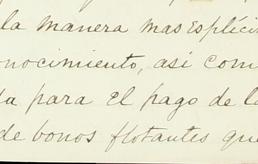 la manera mas esplíci
onocimiento, así com
da para el pago de la
de bonos flotantes que